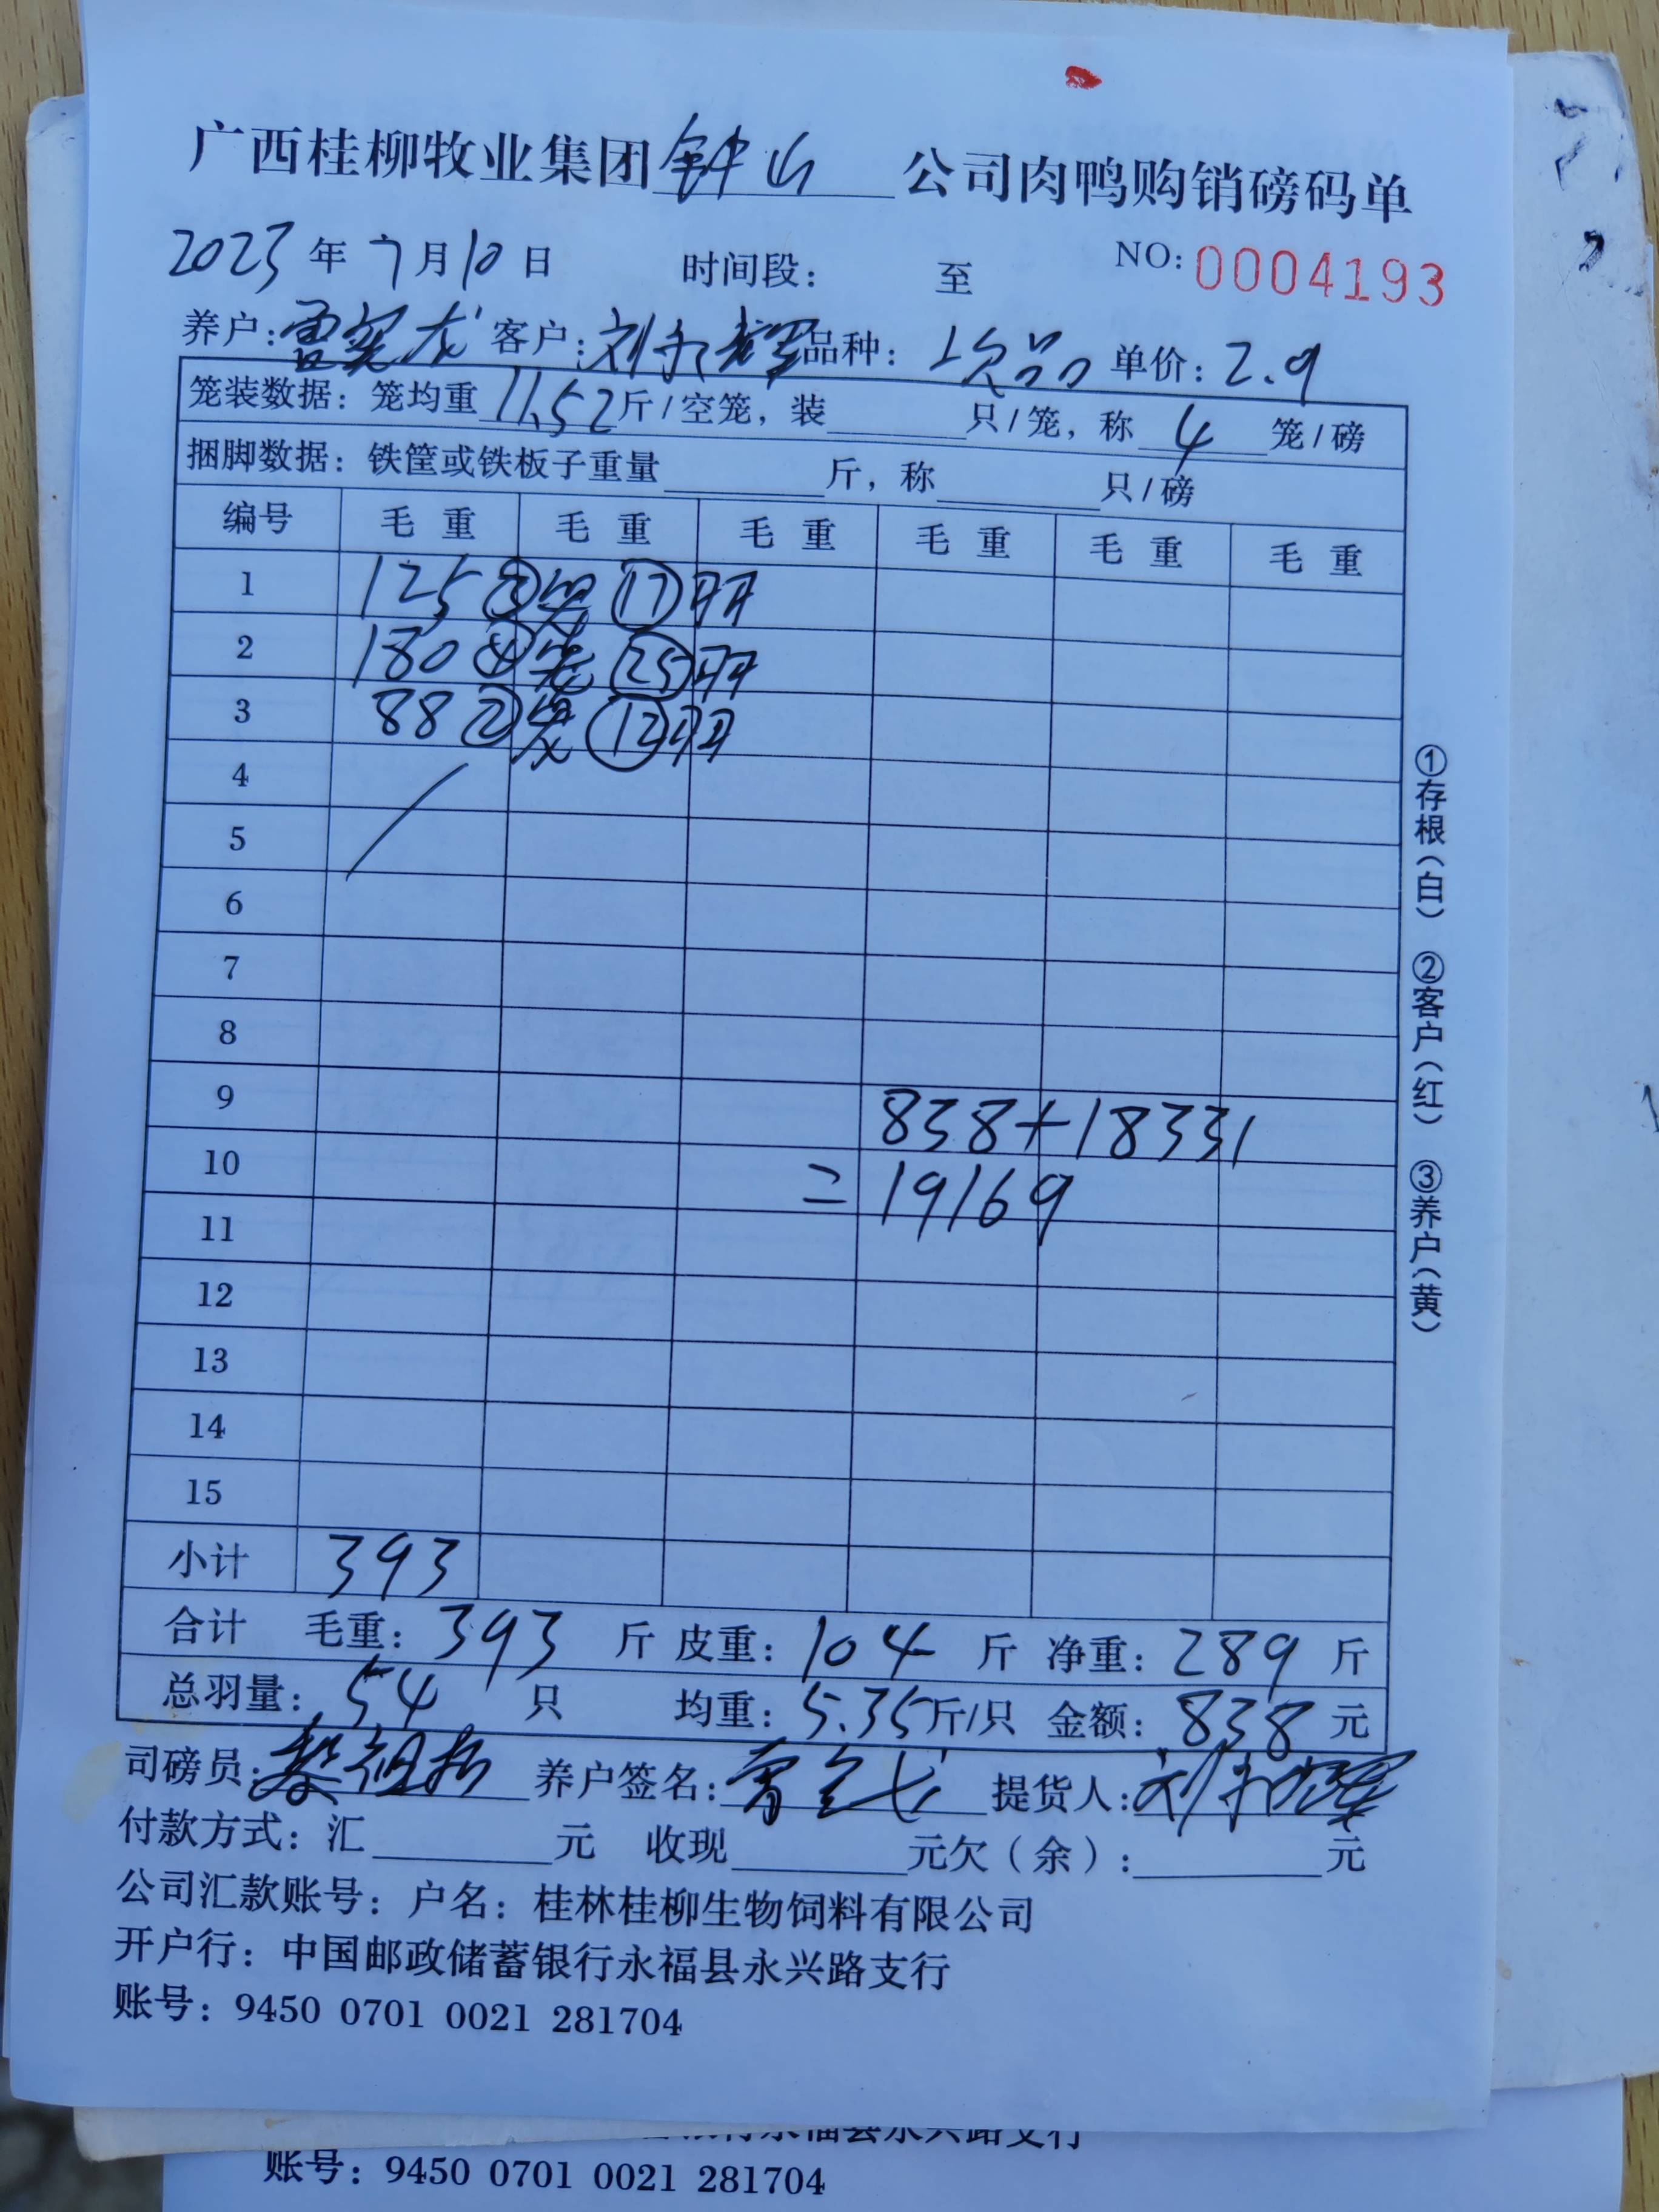 广西桂柳牧业集团钟山公司肉鸭购销磅码单
2023年7月10日 时间段: 至 NO: 0004193
养户: 客户: 刘永辉 品种: 次品 单价: 2.9
笼装数据: 笼均重11.52斤/空笼, 装 只/笼, 称4笼/磅
捆脚数据: 铁筐或铁板子重量 斤, 称 只/磅
编号 毛重 毛重 毛重 毛重 毛重 毛重
1 125 ③笼 ⑰羽
2 180 ④笼 ㉕羽
3 88 ②笼 ⑫羽
4
5
6
7
8
9 838+18331
10 =19169
11
12
13
14
15
小计 393
合计 毛重: 393斤 皮重: 104斤 净重: 289斤
总羽量: 54只 均重: 5.35斤/只 金额: 838元
司磅员: 养户签名: 提货人: 刘永辉
付款方式: 汇 元 收现 元欠(余): 元
公司汇款账号: 户名: 桂林桂柳生物饲料有限公司
开户行: 中国邮政储蓄银行永福县永兴路支行
账号: 9450 0701 0021 281704
①存根(白) ②客户(红) ③养户(黄)
永福县永兴路支行
账号: 9450 0701 0021 281704